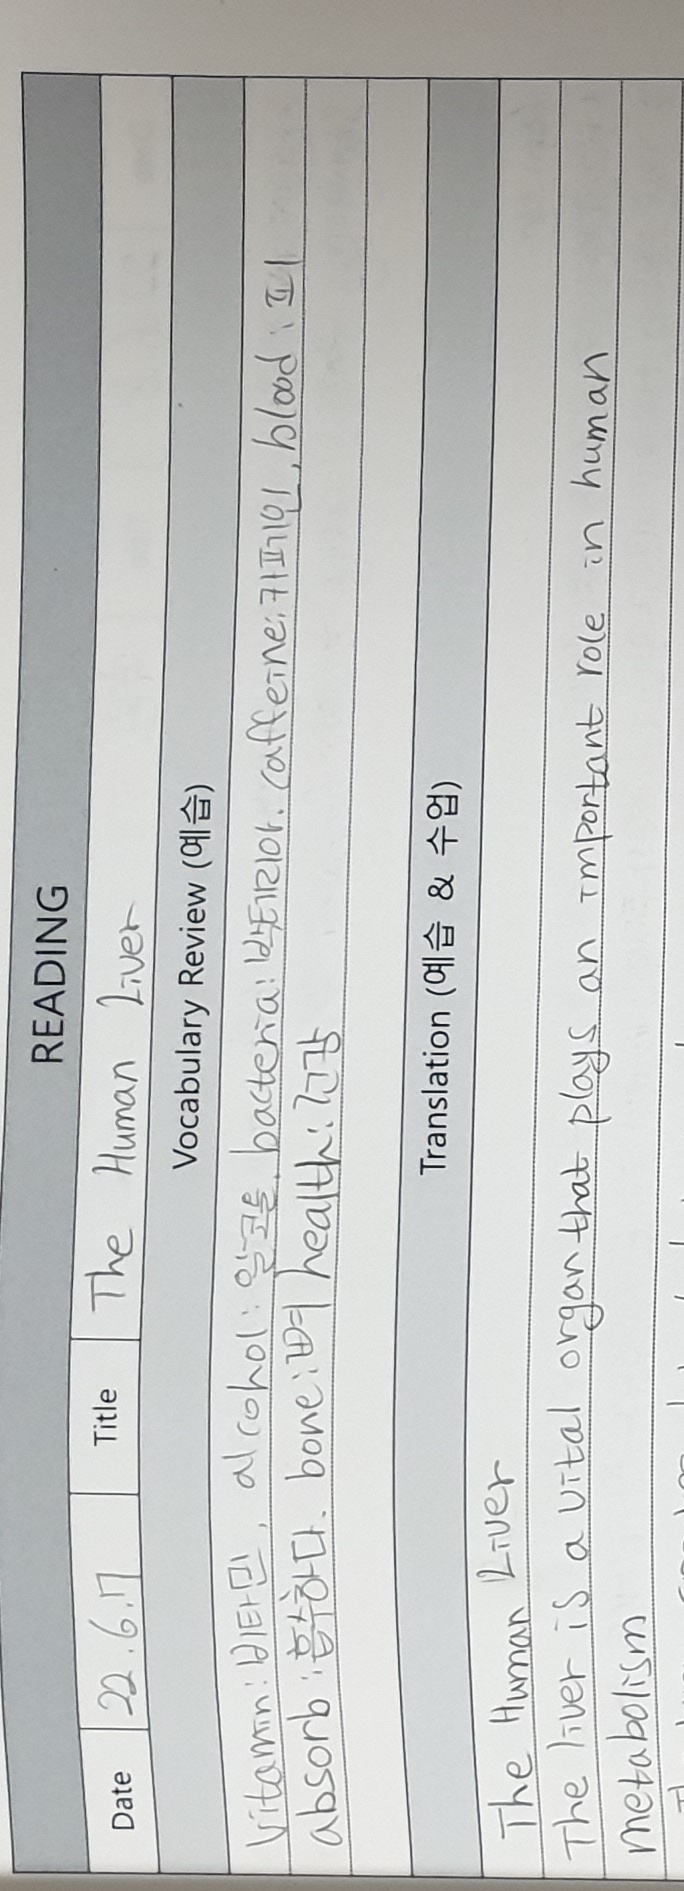 READING
Date 22.6.17 Title The Human Liver
Vocabulary Review (예습)
Vitamin: 비타민, alcohol: 알코올, bacteria: 박테리아. caffeine: 카페인, blood: 피
absorb: 흡수하다. bone: 뼈 health: 건강
Translation (예습 & 수업)
The Human Liver
The liver is a vital organ that plays an important role in human
metabolism